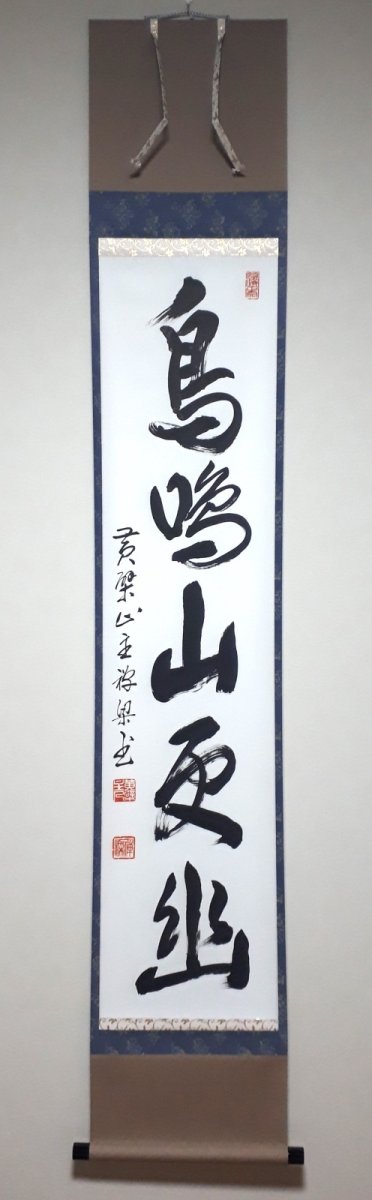 鳥鳴山更幽
黄檗山主禅梁書